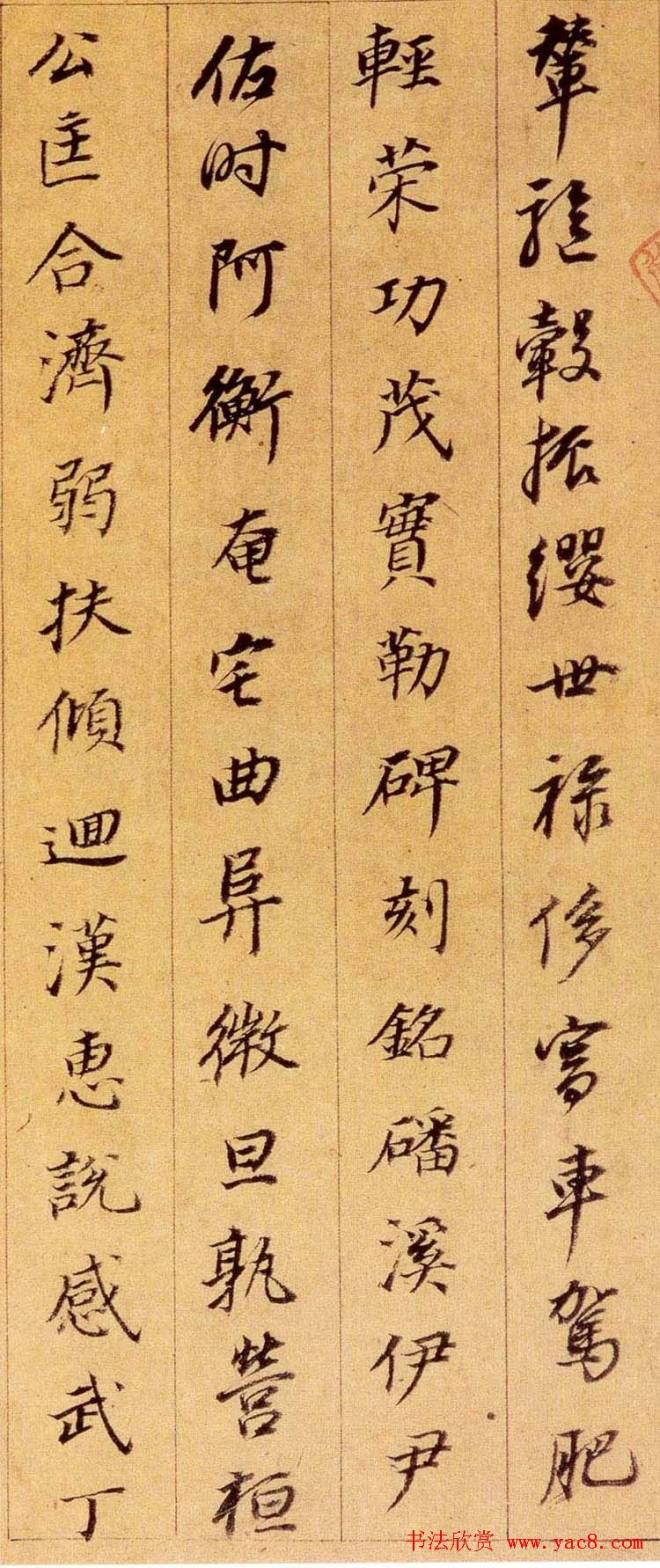 輦駈轂振纓世祿侈富車駕肥
輕荣功茂實勒碑刻銘磻溪伊尹
佐时阿衡奄宅曲阜微旦孰營桓
公匡合濟弱扶傾迴漢惠說感武丁
书法欣赏 www.yac8.com